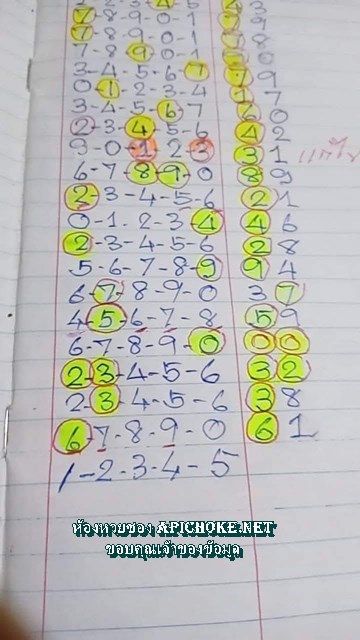 7-8-9-0-1 79
7-8-9-0-1 78
7-8-9-0-1
3-4-5-6-7 79
0-1-2-3-4 17
3-4-5-6-7 70
2-3-4-5-6 42
9-0-1-2-3 31
6-7-8-9-0 89
2-3-4-5-6 21
0-1-2-3-4 46
2-3-4-5-6 28
5-6-7-8-9 94
6-7-8-9-0 37
4-5-6-7-8 59
6-7-8-9-0 00
2-3-4-5-6 32
2-3-4-5-6 38
6-7-8-9-0 61
1-2-3-4-5
ห้องหวยซอง APICHOKE.NET
ขอบคุณเจ้าของข้อมูล